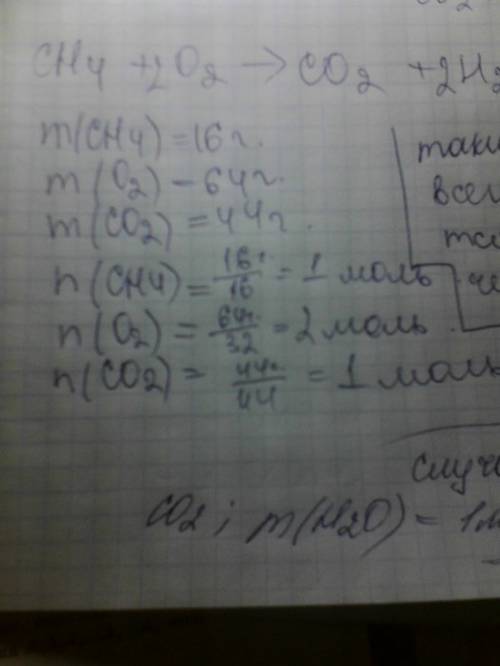 CH4 +2O2 → CO2 +2H2
m(CH4) = 16 г.
m(O2) - 64 г.
m(CO2) = 44 г.
n(CH4) = 16г/16 = 1 моль
n(O2) = 64г/32 = 2 моль
n(CO2) = 44г/44 = 1 моль
таки
всег
CO2 ; m(H2O) = 1м
случе